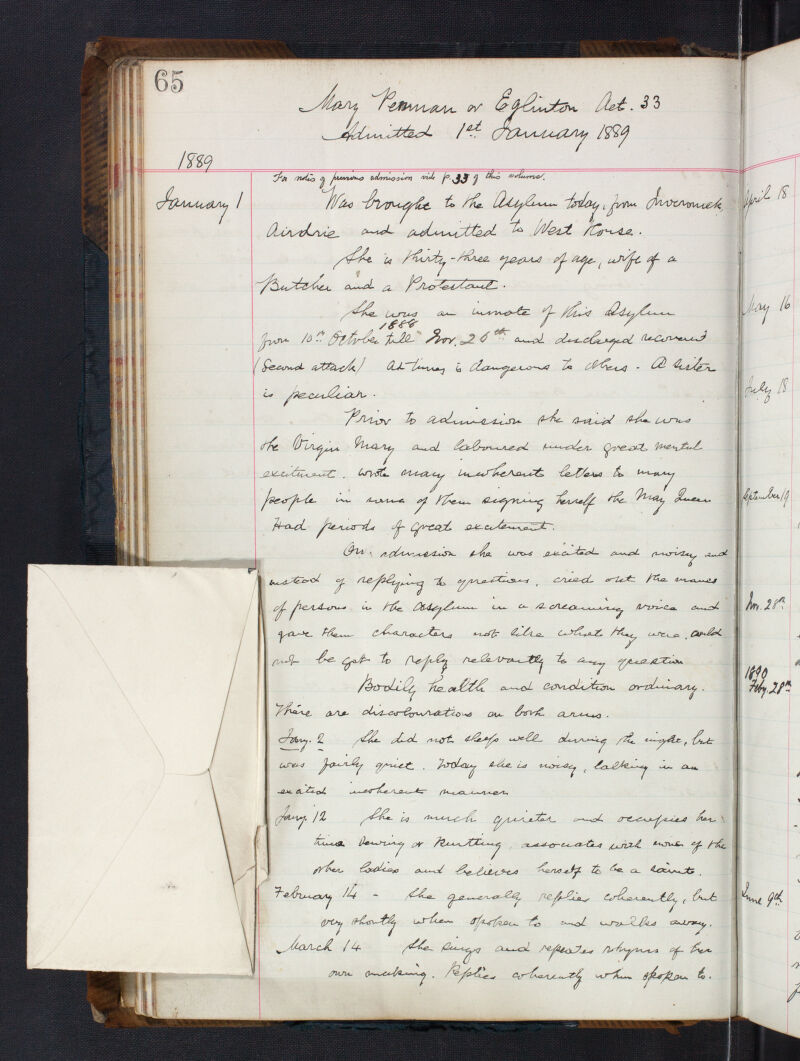 65
Mary Penman or Eglinton Aet. 33
Admitted 1st January 1889
1889
For notes of previous admission vide p. 33 of this volume.
January 1 Was brought to the Asylum today, from
Airdrie and admitted to West House.
She is thirty-three years of age, wife of a
Butcher and a Protestant.
She was an inmate of this Asylum
1888
from 10th October till Nov. 26th and discharged recovered
(Second attack) At times is dangerous to others. A sister
is peculiar.
Prior to admission she said she was
the Virgin Mary and laboured under great mental
excitement. wrote many incoherent letters to many
people in some of them signing herself the May Queen
Had periods of great excitement.
On admission she was excited and noisy and
instead of replying to questions, cried out the names
of persons in the Asylum in a screaming voice and
gave them characters not like what they were, could
not be got to reply relevantly to any question
Bodily health and condition ordinary.
There are discolourations on both arms.
Jany. 2 She did not sleep well during the night, but
was fairly quiet. Today she is noisy, talking in an
excited incoherent manner
Jany 12 She is much quieter and occupies her
time sewing or knitting, associates with some of the
other ladies and believes herself to be a saint.
February 14 - She generally replies coherently, but
very shortly when spoken to and walks away.
March 14 She sings and repeates rhyms of her
own making. Replies coherently when spoken to.
April 18
May 16
July 18
September 19
Nov. 28th
1890
Feby. 28th
June 9th